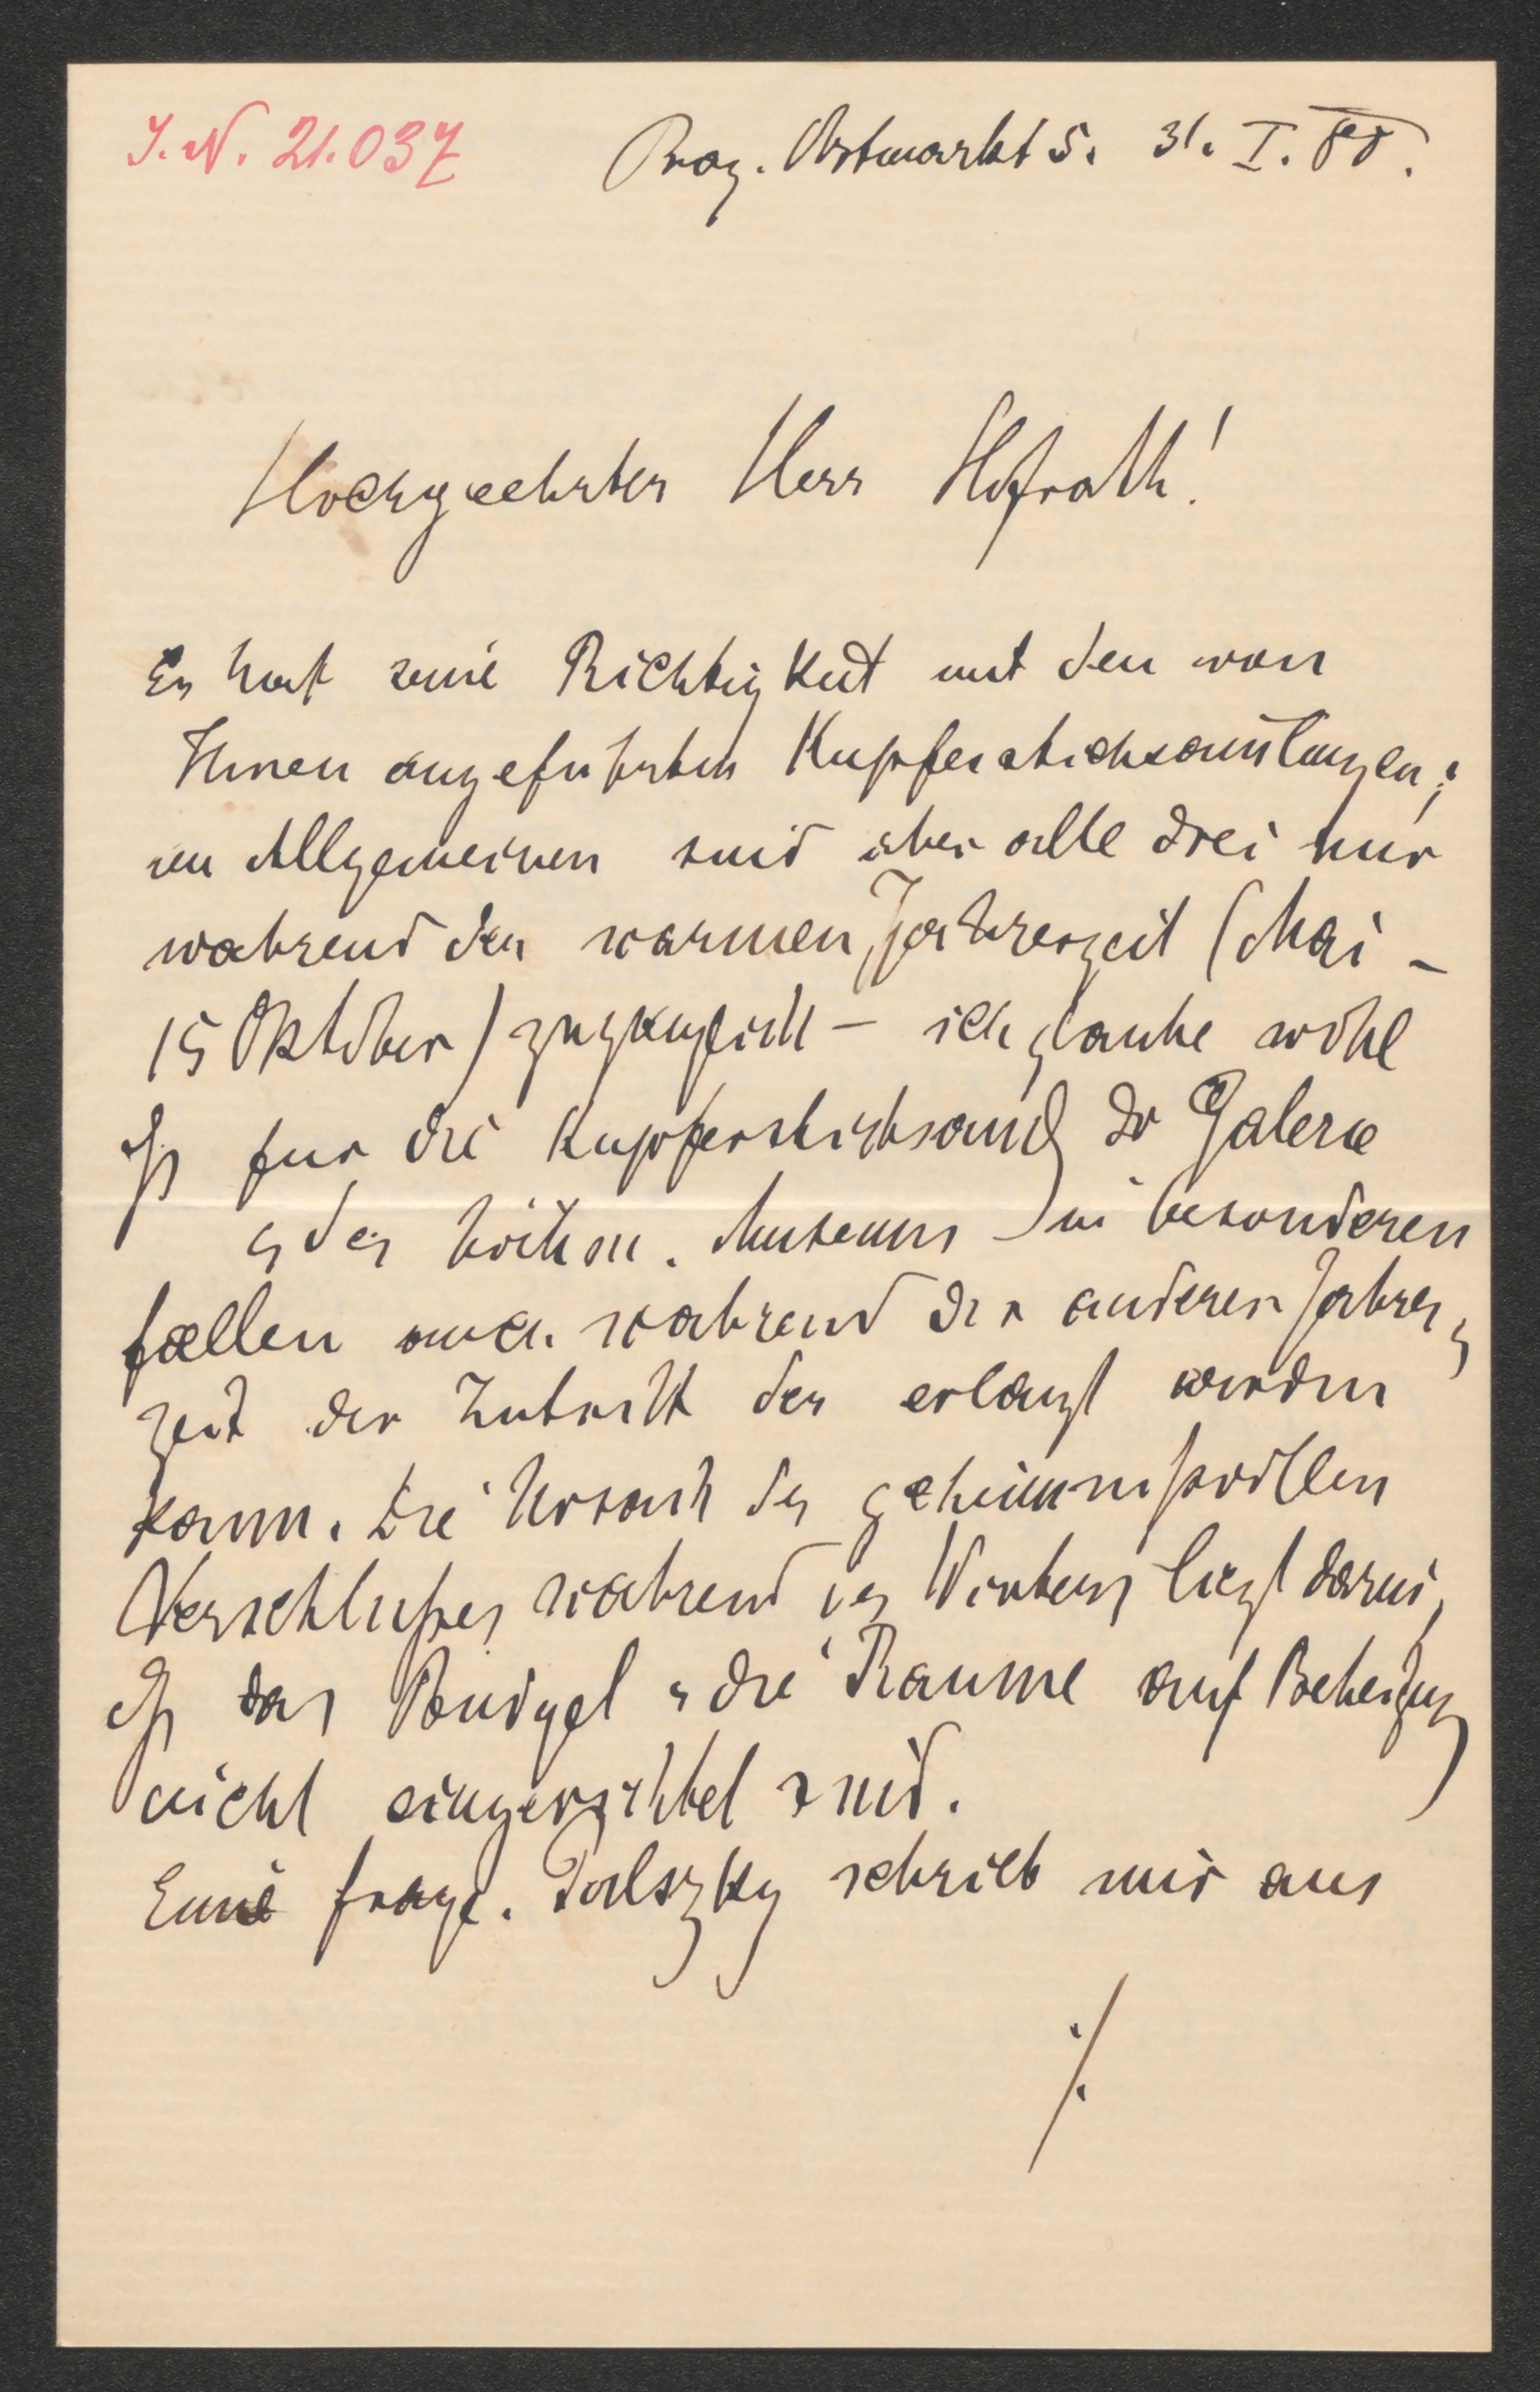 I. N. 21.037
Prag. Obstmarkt 5. 31. I. 88.
Hochgeehrter Herr Hofrath!
Es hat seine Richtigkeit mit den von
Ihnen angeführten Kupferstichsammlungen;
im Allgemeinen sind aber alle drei nur
während der warmen Jahreszeit (Mai –
15 Oktober) zugänglich – ich glaube wohl
für die Kupferstichsamlg der Galerie
u des böhm. Museums in besonderen
fällen auch während der anderen Jahres
zeit der Zutritt erlangt werden
kann. Die Ursach des geheimnißvollen
Verschlußes während des Winters liegt darin,
das u die Räume auf Beheizung
nicht eingerichtet sind.
Eine frage. Pulszky schrieb mir aus
./.